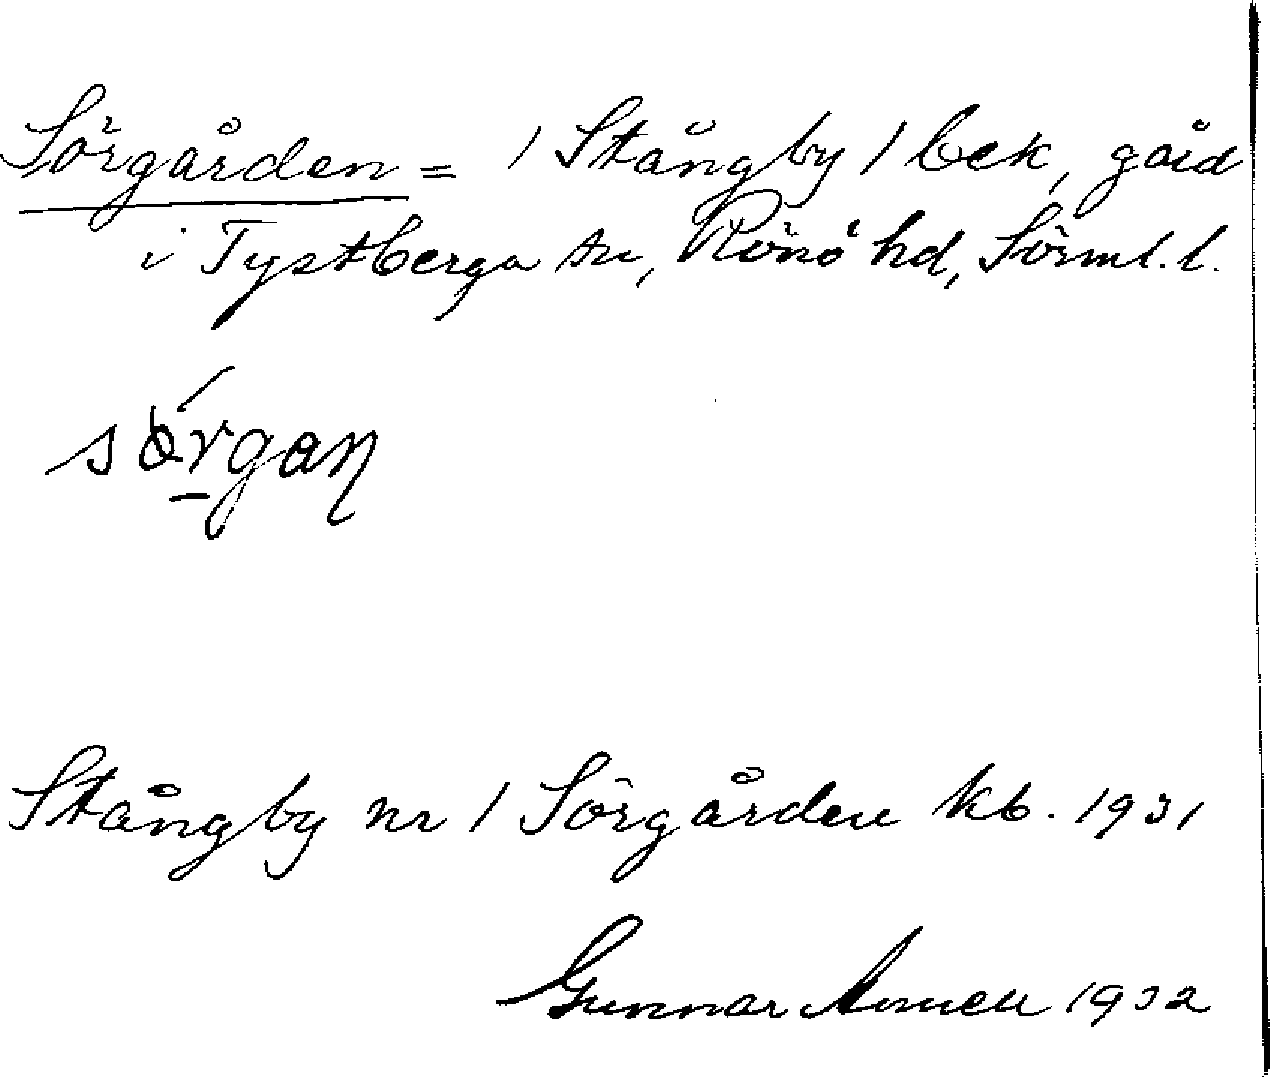 Sörgården = / Stångby / bek, gård
i Tystberga sn, Rönö hd, Sörml. l.
sörgaɳ
Stångby nr 1 Sörgården kb. 1931
Gunnar 1932